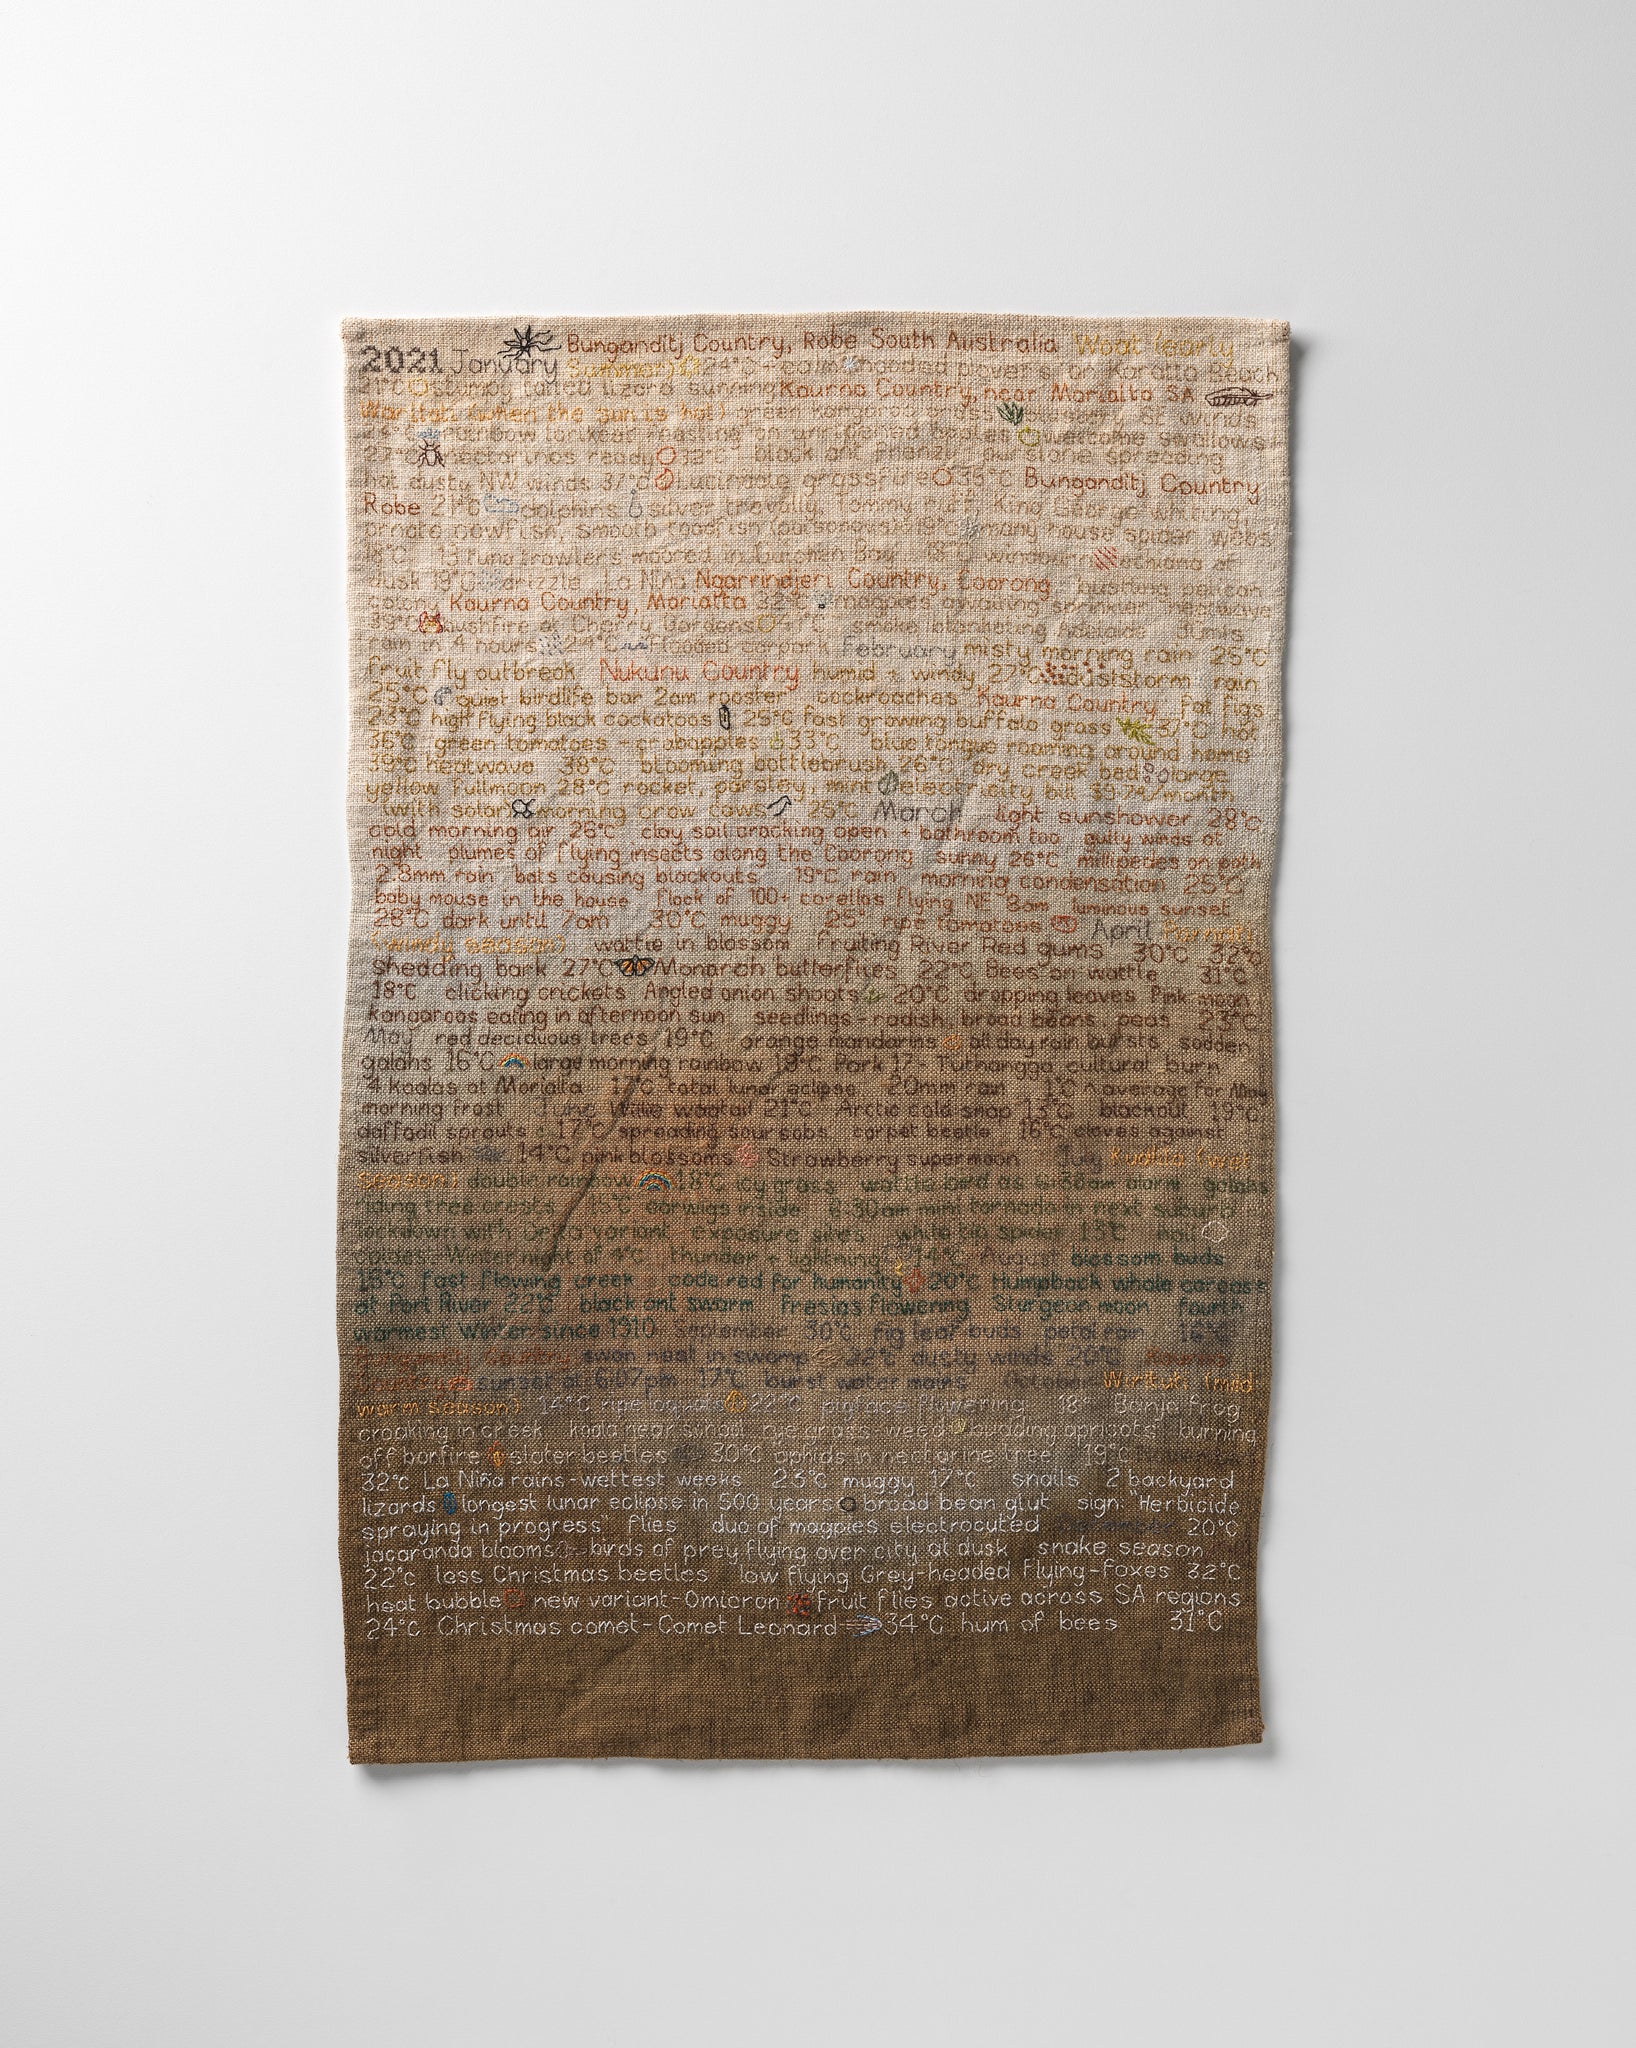 2021 January Bunganditj Country, Robe South Australia Woat (early
Summer) 24°C hooded plovers on Karatta Beach
21°C stumpy tailed lizard sunning Kaurna Country, near Morialta SA
Warltati (when the sun is hot) green kangaroo SE winds
24°C rainbow lorikeet feasting on unripened apples welcome swallows
27°C nectarines ready 32°C black ant frenzy purslane spreading
hot dusty NW winds 37°C Lucindale grassfire 35°C Bunganditj Country
Robe 21°C dolphins silver trevally, tommy ruff, King George whiting,
ornate cowfish, smooth toadfish (poisonous) 19°C many house spider webs
18°C 13 tuna trawlers moored in Guichen Bay 18°C windburn echidna at
dusk 19°C drizzle La Niña Ngarrindjeri Country, Coorong bustling pelican
colony Kaurna Country, Morialta 32°C magpies awaiting sprinkler heatwave
39°C bushfire at Cherry Gardens smoke blanketing Adelaide
rain in 4 hours 24°C flooded carpark February misty morning rain 25°C
fruit fly outbreak Nukunu Country humid + windy 27°C duststorm rain
25°C quiet birdlife bar 2am rooster cockroaches Kaurna Country Fat figs
23°C high flying black cockatoos 25°C fast growing buffalo grass 37°C hot
36°C green tomatoes - crabapples 33°C blue tongue roaming around home
39°C heatwave 38°C blooming bottlebrush 26°C dry creek bed large
yellow fullmoon 28°C rocket, parsley, mint electricity bill 39.74/month
(with solar) morning crow caws 25°C March light sunshower 28°C
cold morning air 26°C clay soil cracking open + bathroom too gully winds at
night plumes of flying insects along the Coorong sunny 26°C millipedes on path
2.8mm rain bats causing blackouts 19°C rain morning condensation 25°C
baby mouse in the house flock of 100+ corellas flying NE 8am luminous sunset
28°C dark until 7am 30°C muggy 25° ripe tomatoes April Parnati
(windy season) wattle in blossom Fruiting River Red gums 30°C 32°C
Shedding bark 27°C Monarch butterflies 22°C Bees on wattle 31°C
18°C clicking crickets Angled onion shoots 20°C dropping leaves Pink moon
kangaroos eating in afternoon sun seedlings - radish, broad beans, peas 23°C
May red deciduous trees 19°C orange mandarins all day rain bursts sodden
galahs 16°C large morning rainbow 18°C Park 17- Tuthangga cultural burn
4 koalas at Morialta 17°C total lunar eclipse 20mm rain 1°C ^ average for May
morning frost June Willie wagtail 21°C Arctic cold snap 13°C blackout 19°C
daffodil sprouts 17°C spreading soursobs carpet beetle 16°C cloves against
silverfish 14°C pink blossoms Strawberry supermoon July Kudlila (wet
season) double rainbow 18°C icy grass wattle bird as 6:30am alarm galahs
tree crests 15°C earwigs inside 6:30am mini tornado in next suburb
lockdown with Delta variant exposure sites white tip spider 13°C hail
Winter night of 4°C thunder + lightning 14°C August blossom buds
15°C fast flowing creek code red for humanity 20°C Humpback whale carcass
at Port River 22°C black ant swarm Fresias flowering Sturgeon moon fourth
warmest Winter since 1910 September 30°C fig leaf buds petal rain
Bunganditj Country swan nest in swamp 22°C dusty winds 20°C Kaurna
Country sunset at 6:07pm 17°C burst water mains October Wirltuti (mid
warm season) 14°C ripe loquats 22°C pigface flowering 18° Banjo frog
croaking in creek koala near school rye grass weed budding apricots burning
off bonfire slater beetles 30°C aphids in nectarine tree 19°C
32°C La Niña rains - wettest weeks 23°C muggy 17°C snails 2 backyard
lizards longest lunar eclipse in 500 years broad bean glut sign "Herbicide
spraying in progress" flies duo of magpies electrocuted December 20°C
jacaranda blooms birds of prey flying over city at dusk snake season
22°C less Christmas beetles low flying Grey-headed Flying-foxes 32°C
heat bubble new variant-Omicron fruit flies active across SA regions
24°C Christmas comet-Comet Leonard 34°C hum of bees 31°C